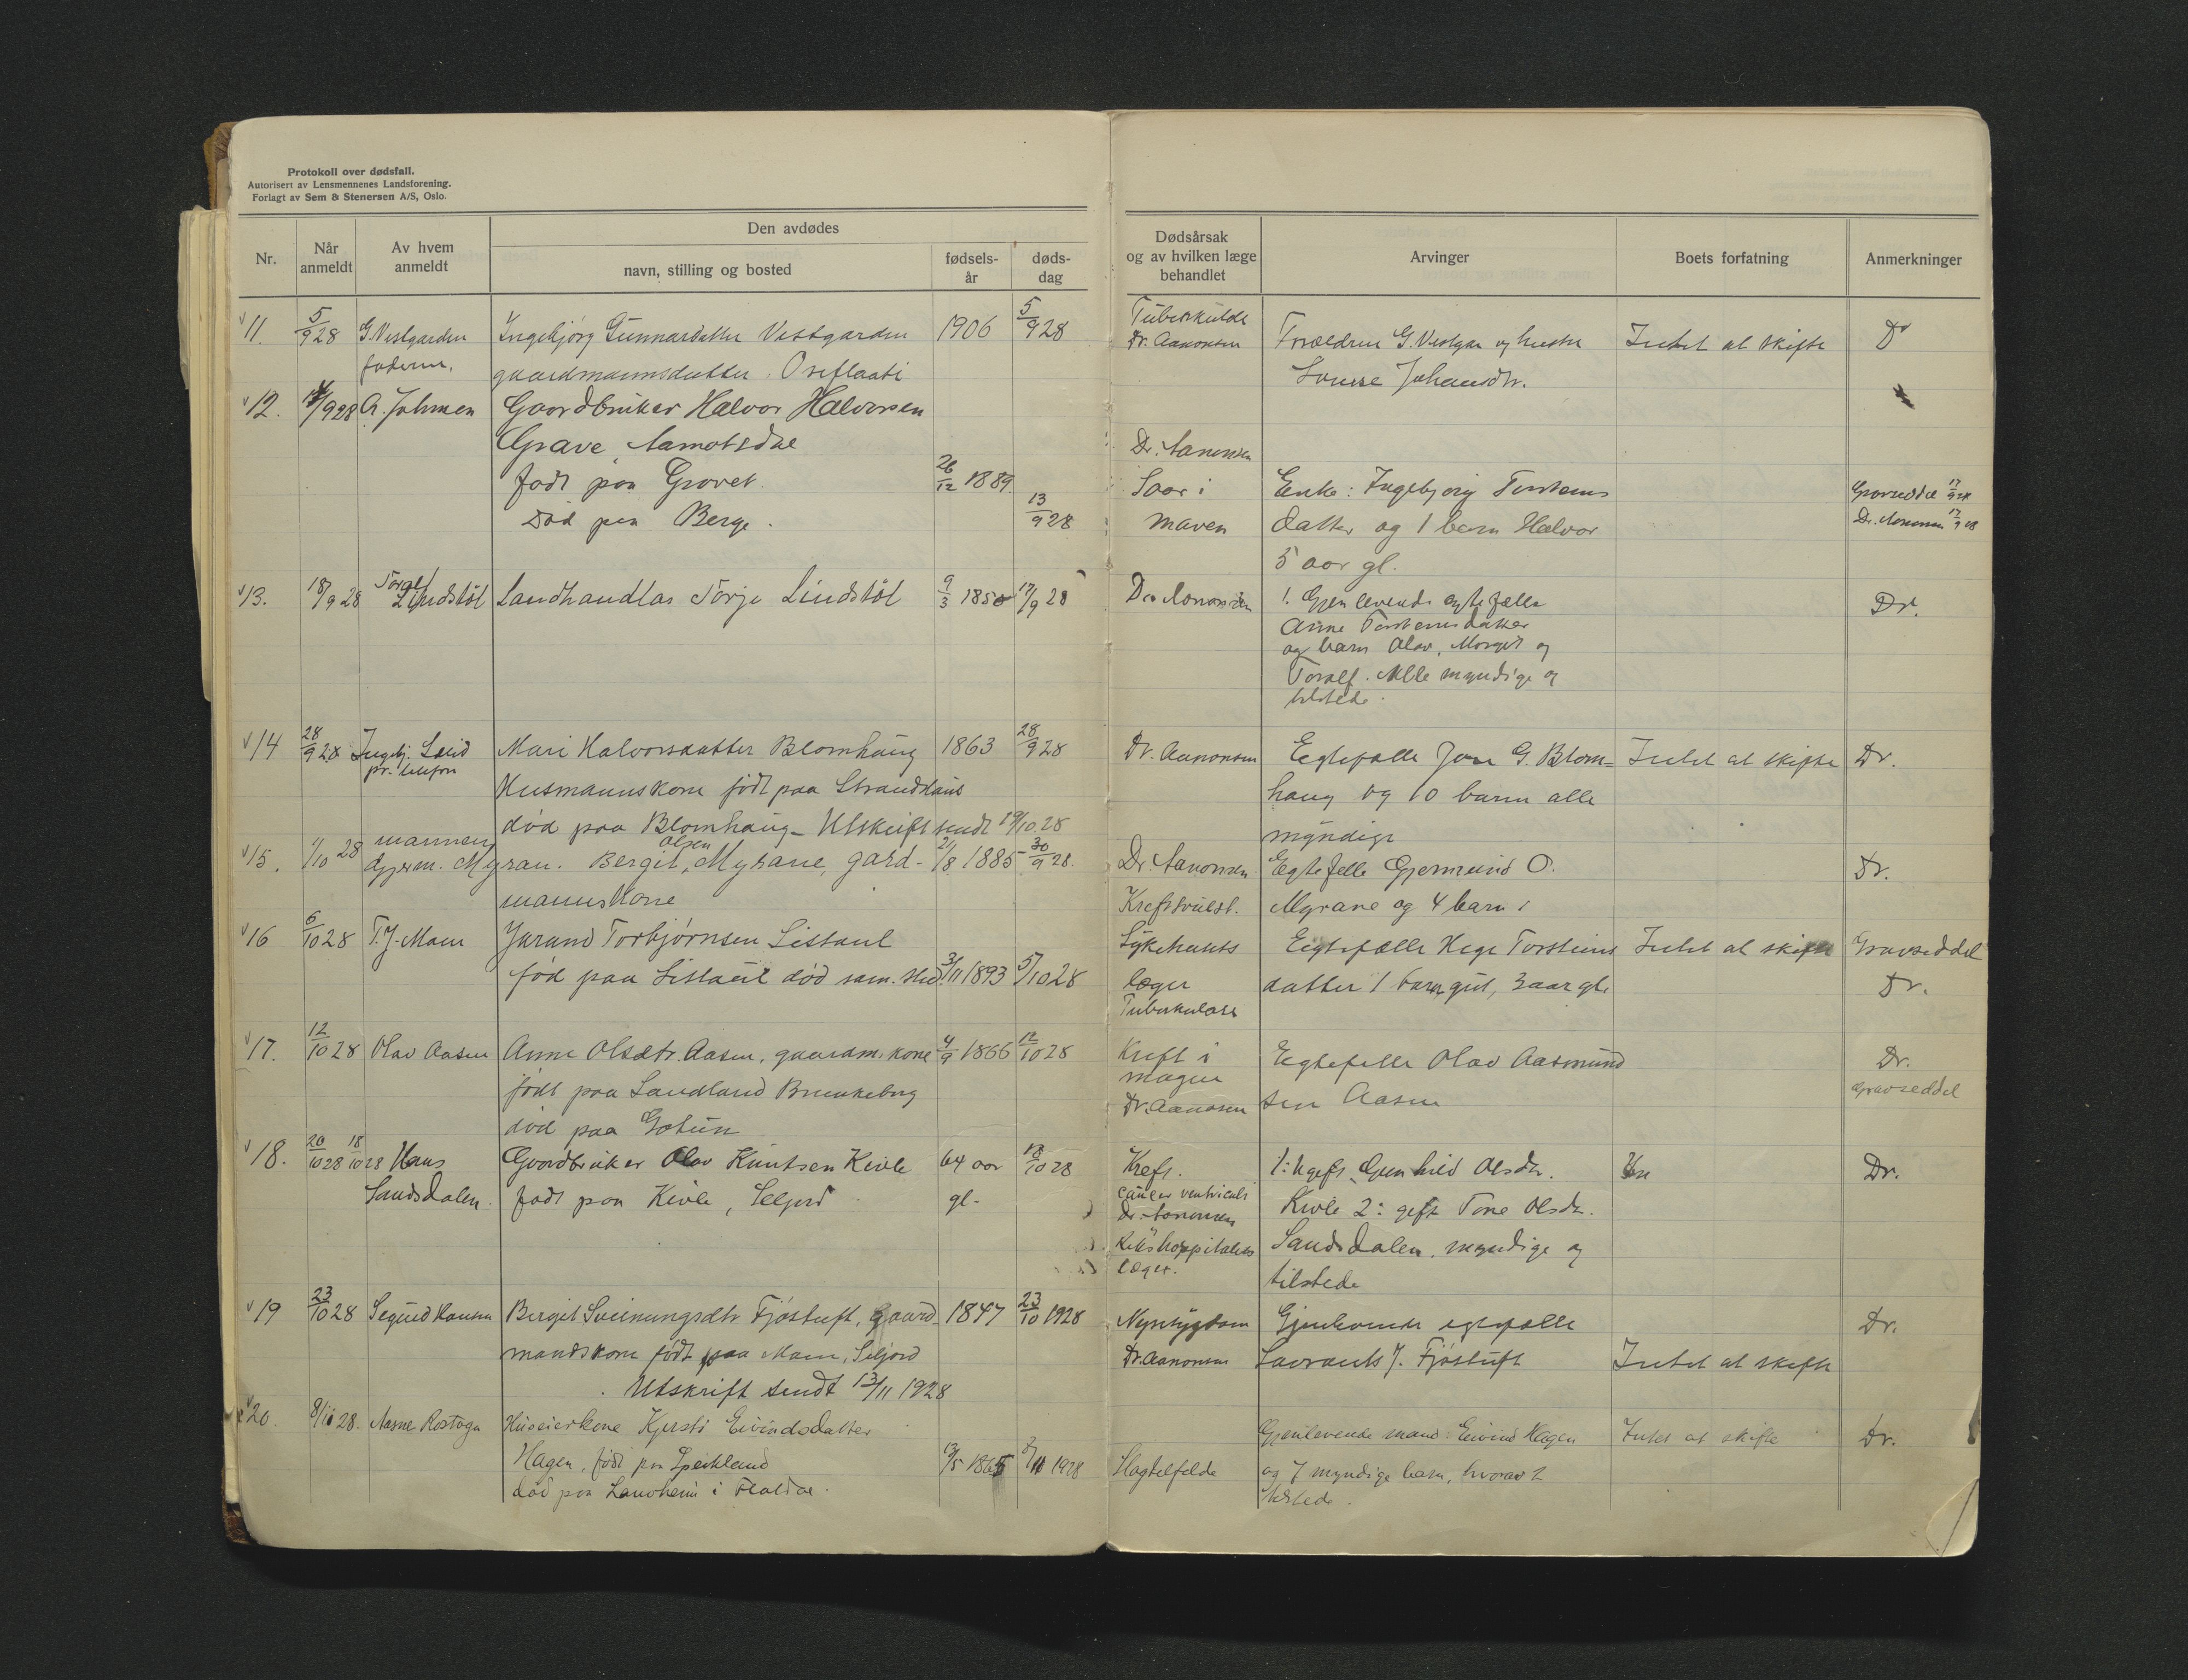 Protokoll over dødsfall.
Autorisert av Lensmennenes Landsforening.
Forlagt av Sem & Stenersen A/S, Oslo.
Nr.
Når anmeldt
Av hvem anmeldt
Den avdødes
navn, stilling og bosted
fødsels-år
døds-dag
Dødsårsak
og av hvilken læge
behandlet
Arvinger
Boets forfatning
Anmerkninger
11. 5/9 28 G. Vestgarden Ingebjörg Gunnarsdatter Vestgarden 1906 5/9 28 Dr. Aanonsen Forældrene G. Vestgar og hustru Intet at skifte D
faderen, gaardmannsdatter Johansdtr.
12. /9 28 Johnsen Gaardbruker Halvor Halvorsen
Grave, Aamotsdal Dr. Aanonsen
født paa Grovet. 26/12 1889. Saar i Enke: Ingebjørg Torsteins Gravseddel 17/9 28
død paa Berge. 13/9 28 maven datter og 1 barn Halvor Dr. Aanonsen 17/9 28
5 aar gl.
13. 18/9 28 Lindstöl Landhandlar Torje Lindstöl 9/3 1850 17/9 28 Dr. Aanonsen 1. Gjenlevende egtefælle Dr.
Anne Torsteinsdatter
og barn Olav, Margit og
Toralf. Alle myndige og
tilstede.
14 28/9 28 Ingebj. Lid Mari Halvorsdatter Blomhaug 1863 28/9 28 Dr. Aanonsen Egtefælle Jon G. Blom= Intet at skifte Dr.
pr. telefon Husmannskone født paa haug og 10 barn alle
død paa Blomhaug – Utskrift sendt 19/10 28 myndige
mannen Olsen
15. 1/10 28 Gjerm. Myran. Bergit Myrane, gard- 21/8 1885 30/9 28. Dr. Aanonsen Egtefelle Gjermund O. Dr.
mannskone Kreftsvulst. Myrane og 4 barn
16 6/10 28 T. J. Maen Jarand Torbjørnsen Listaul Sykehusets Egtefælle Hege Torsteins Intet at skifte Gravseddel
fød paa Listaul død sam. sted. 3/11 1893 5/10 28 læger datter 1 barn gut, 3 aar gl. Dr.
Tuberkulose
17. 12/10 28 Olav Aasen Anne Olsdtr. Aasen, gaardm. kone 4/9 1866 12/10 28 Kreft i Egtefelle Olav Aasmund Dr.
født paa Sandland Brunkeberg magen sen Aasen Gravseddel
død paa Gotun Dr. Aanonsen
18. 20/10 28 18/10 28 Hans Gaardbruker Olav Knutsen Kivle 64 aar 18/10 28 Kreft. 1: Ugift Gunhild Olsdtr. Dr.
Sandsdalen. født paa Kivle, Seljord gl. cancer ventriculi Kivle 2: gift Tone Olsdtr.
Dr. Aanonsen
Rikshospitalets Sandsdalen. myndige og
læger. tilstede
19 23/10 28 Sigurd Bergit Sveinungsdtr Fjöstuft, gaard- 1847 23/10 1928 Nyresygdom Gjenlevende egtefælle Dr.
mandskone født paa Maen, Seljord Dr. Aanonsen J. Fjöstuft Intet at skifte
Utskrift sendt 13/11 1928
20. 8/11 28. Aasne Huseierkone Kjersti Eivindsdatter Gjenlevende mand: Eivind Hagen Intet at skifte Dr.
Hagen, født paa 13/5 1865 /11 1928 og 7 myndige barn, hvorav 2
død paa i Flatdal. tilstede.